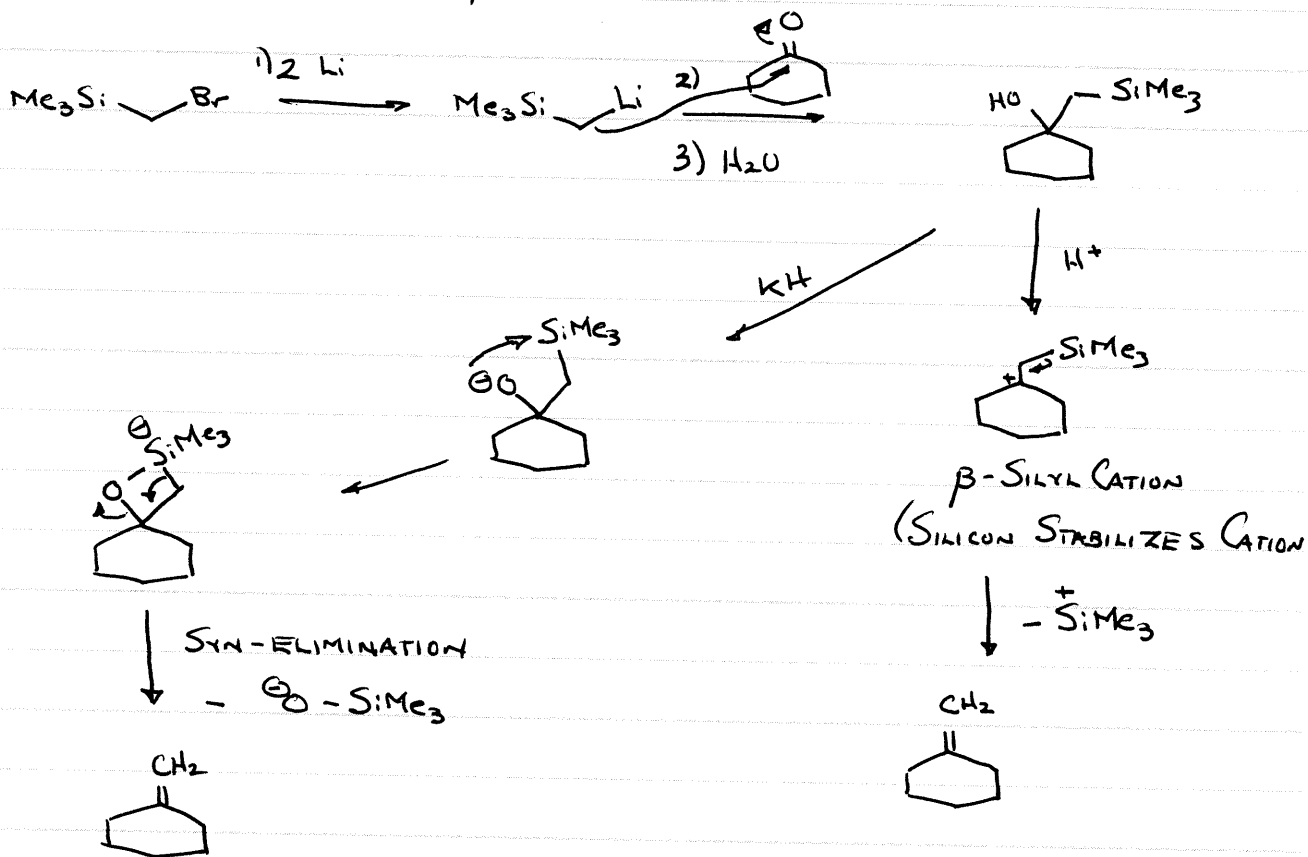 1) 2 Li
Me3Si Br
Me3Si Li
2)
O
3) H2O
HO SiMe3
KH
H+
SiMe3
⊖O
SiMe3
+
⊖
SiMe3
O
β-SILYL CATION
(SILICON STABILIZES CATION
- +SiMe3
SYN-ELIMINATION
- ⊖O-SiMe3
CH2
CH2